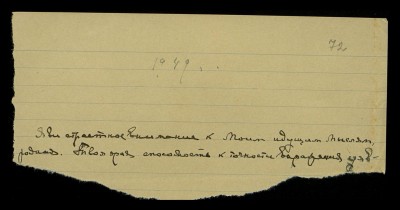 72
1949.
Яви страстное внимание к Моим идущим мыслям,
родная. Твоя способность к точности выражения